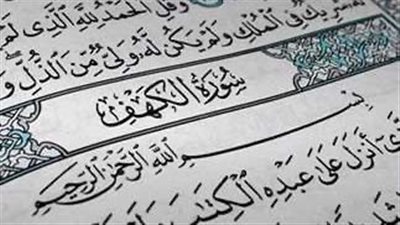 وَقُلِ ٱلْحَمْدُ لِلَّهِ ٱلَّذِى لَمْ
شَرِيكٌ فِى ٱلْمُلْكِ وَلَمْ يَكُن لَّهُۥ وَلِىٌّ مِّنَ ٱلذُّلِّ
سُورَةُ الكَهْفِ
بِسْمِ ٱللَّهِ ٱلرَّحْمَٰنِ ٱلرَّحِيمِ
أَنزَلَ عَلَىٰ عَبْدِهِ ٱلْكِتَٰبَ